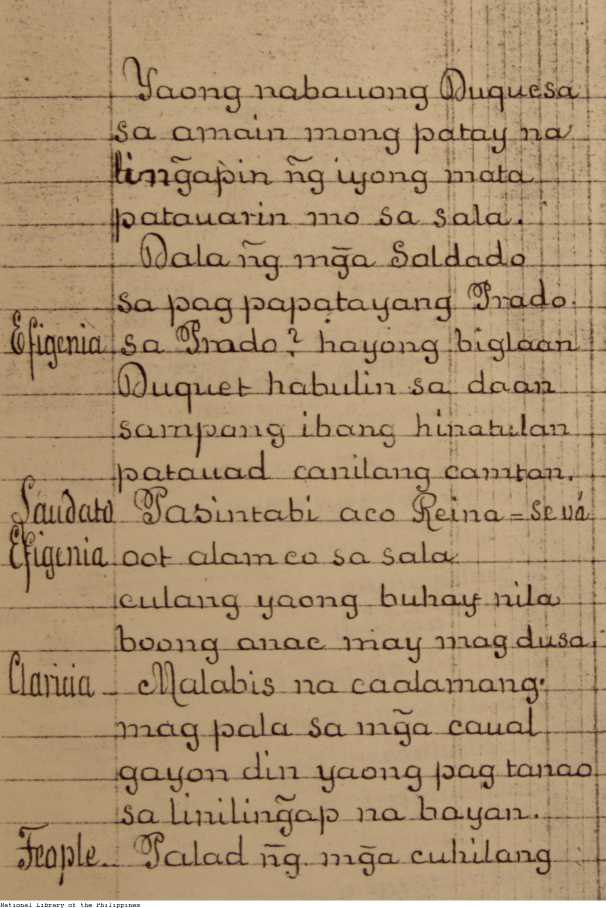 Yaong nabauong Duquesa
sa amain mong patay na
ling̃apin ñg iyong mata
patauarin mo sa sala.
Dala ñg mg̃a Soldado
sa pag papatayang Prado.
Efigenia sa Prado? hayong biglaan
Duquet habulin sa daan
sampong ibang hinatulan
patauad canilang camtan.
Saudato Pasintabi aco Reina = se vá
Efigenia oot alam co sa sala
culang yaong buhay nila
boong anac may mag dusa.
Claricia - Malabis na caalamang.
mag pala sa mg̃a caual
gayon din yaong pag tanao
sa liniling̃ap na bayan.
Feople. Palad ñg mg̃a cuhilang
National Library of the Philippines